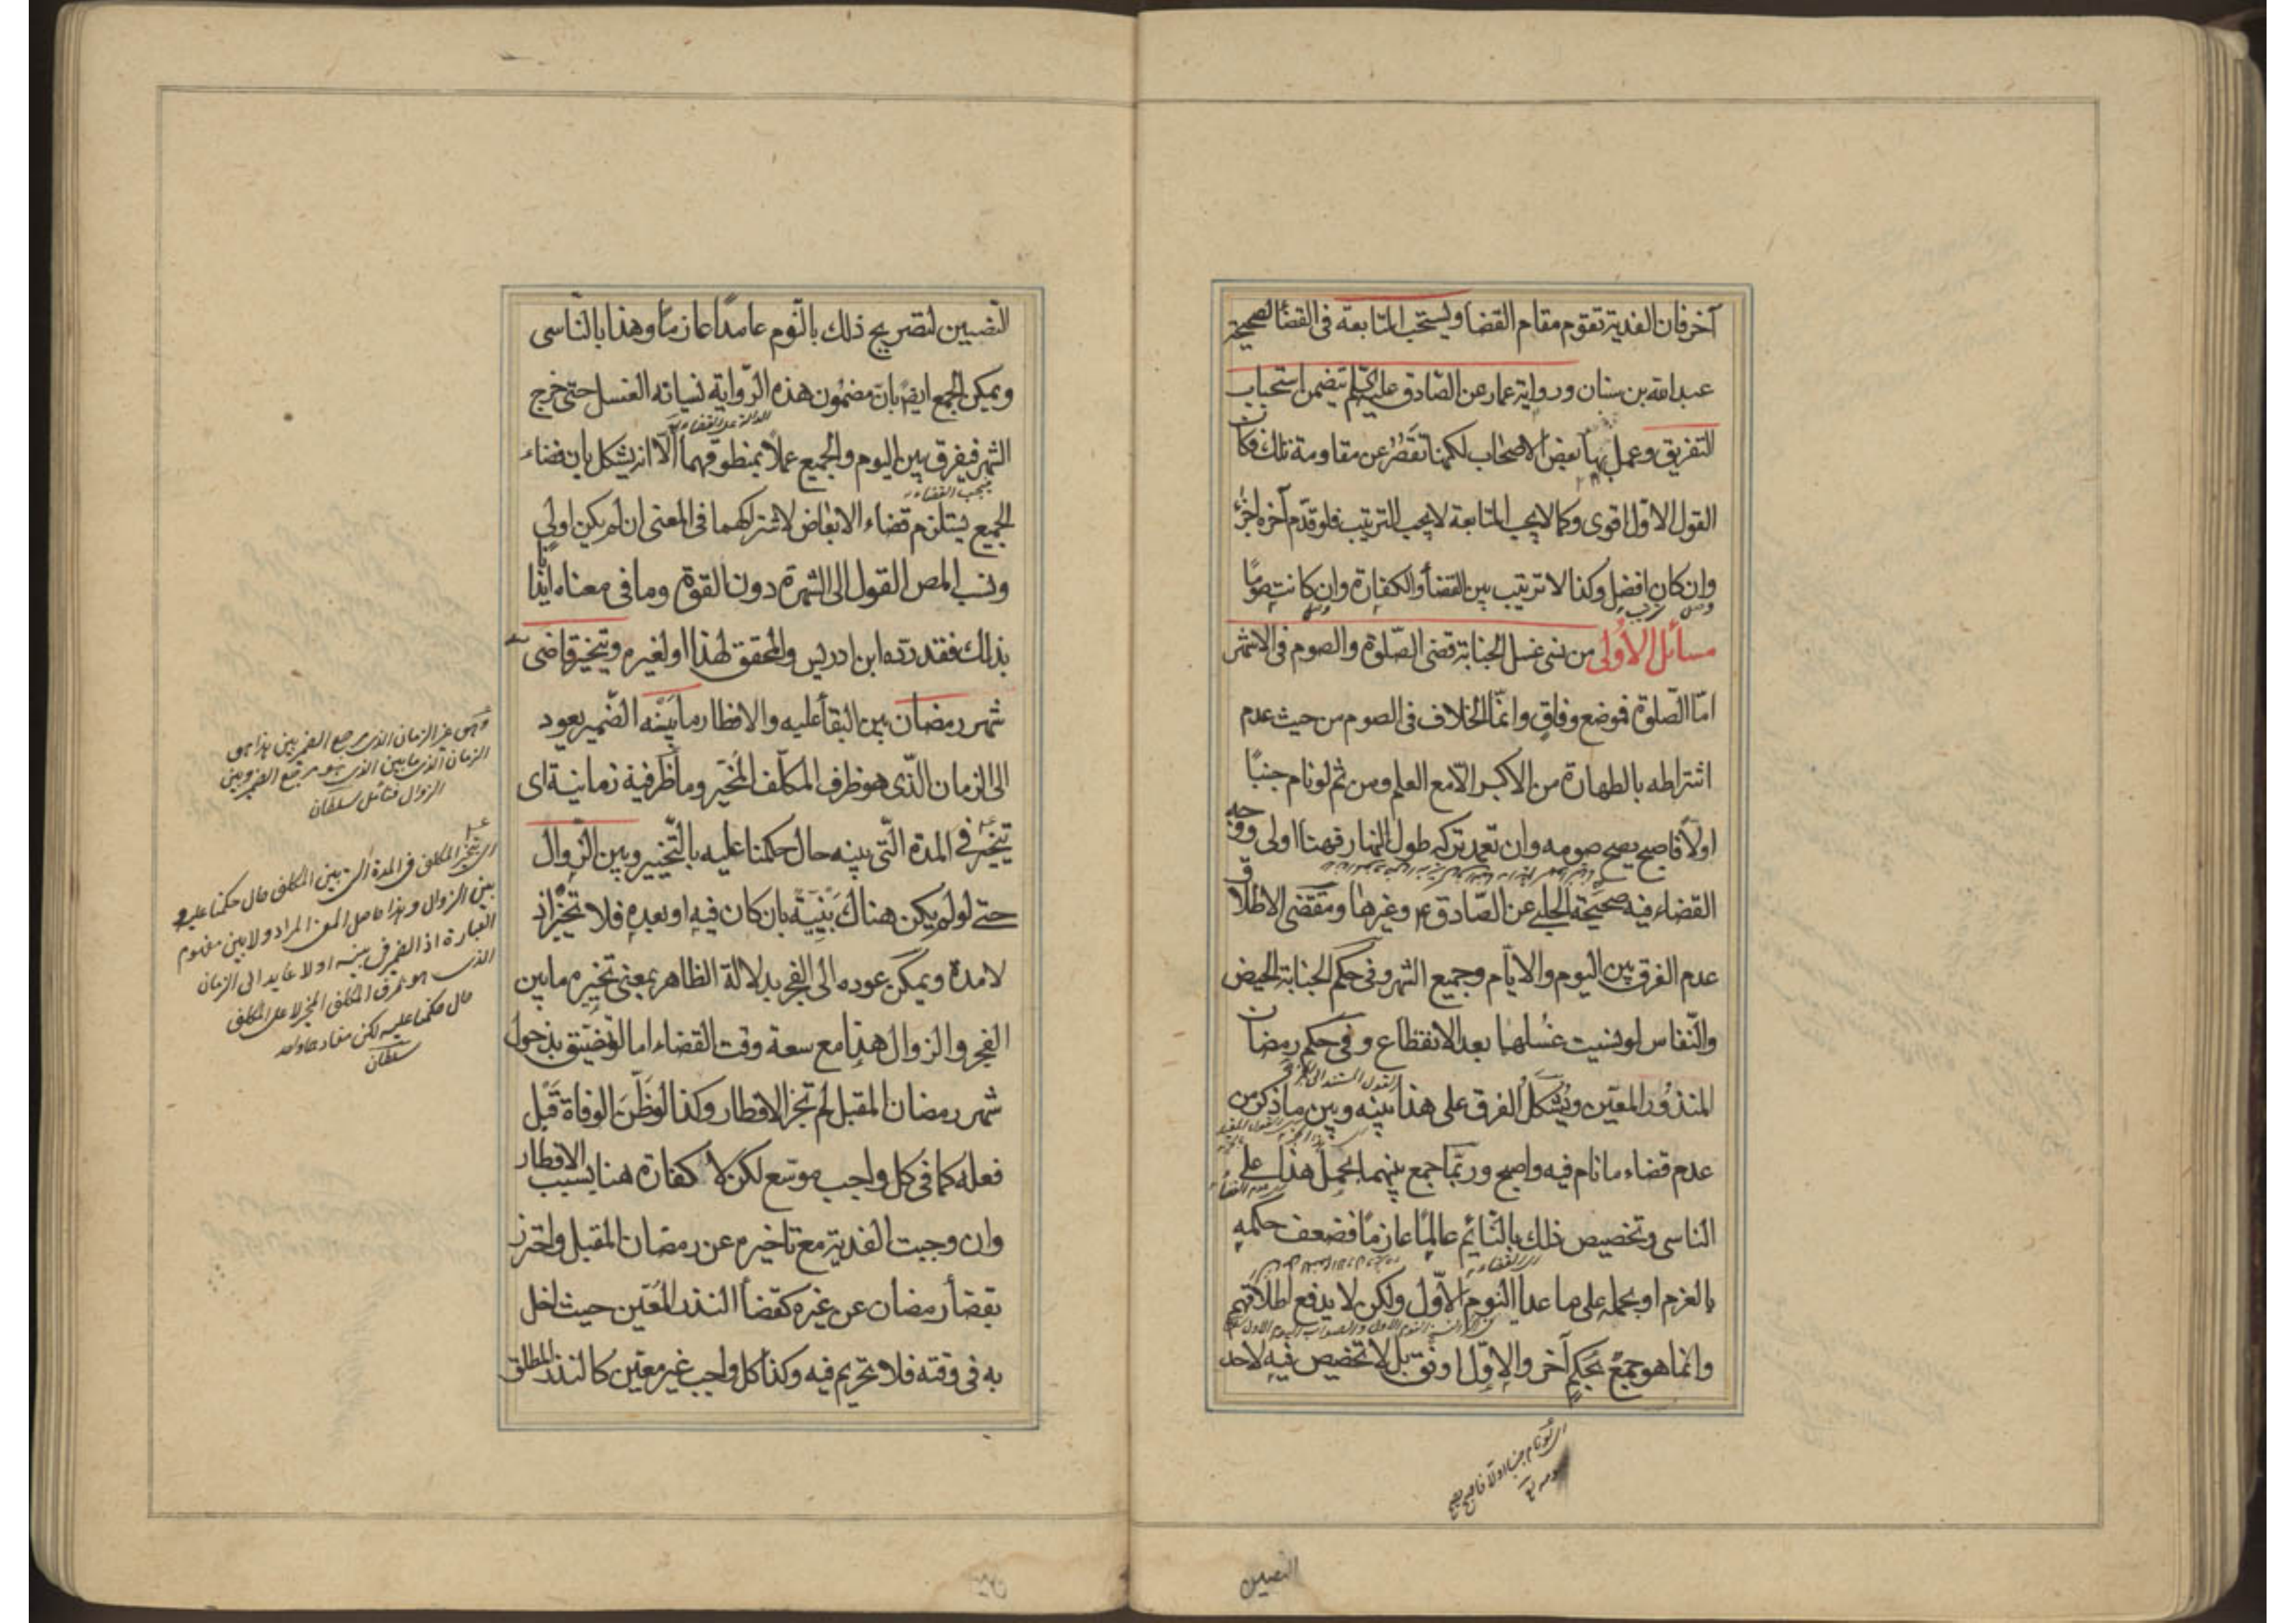 آخر فان الفدية تقوم مقام القضأ ويستحب المتابعة فى القضأ لصحيحة
عبد الله بن سنان ورواية عمار عن الصّادق عليه السّلم تتضمن استحباب
التفريق وعمل بها بعض الاصحاب لكنها تقصُر عن مقاومة تلك فكان
القول الاوّل اقوى وكما لا يجب المتابعة لا يجب الترتيب فلو قدّم آخره اجزأ
وان كان افضل وكذا لا ترتيب بين القضأ والكفارة وان كانت صومًا
مسائل الأولى من نسى غسل الجنابة قضى الصّلوة والصوم فى الاشهر
امّا الصّلوة فموضع وفاقٍ وانمّا الخلاف فى الصوم من حيث عدم
اشتراطه بالطهارة من الاكبر الّا مع العلم ومن ثم لو نام جنبًا
اولًا فاصبح يصح صومه وان تعمد تركه طول النهار فهنا اولى ووجه
القضاء فيه صحيحة الحلبى عن الصّادق ع وغيرها ومقتضى الاطلاق
عدم الفرق بين اليوم والايّام وجميع الشهر وفى حكم الجنابة الحيض
والنّفاس لو نسيت غسلهما بعد الانقطاع وفى حكم رمضان
المنذور المعيّن ويُشكل الفرق على هذا بينه وبين ما ذكر من
عدم قضاء ما نام فيه واصبح وربّما جمع بينهما بحمل هذا على
الناسى وتخصيص ذلك بالنّائم عالمًا عازمًا فضعف حكمه
بالعزم او بحمله على ما عدا النوم الاوّل ولكن لا يدفع اطلاقهم
وانما هو جمعٌ بحكمٍ آخر والاوّل اوفق بل لا تخصيص فيه لاحد
اى لو نام جنبا اولًا فاصبح يصح
صومه
النصين
النصّين لتصريح ذلك بالنّوم عامدًا عازمًا وهذا بالنّاسى
ويمكن الجمع ايضً بانّ مضمون هذه الرّواية نسيانه الغسل حتى خرج
الشهر فيفرق بين اليوم والجميع عملًا بمنطوقهما الّا انه يشكل بان قضاء
الجميع يستلزم قضاء الابعاض لاشتراكهما فى المعنى ان لم يكن اولى
ونسب المص القول الى الشهرة دون القوة وما فى معناه ايذانا
بذلك فقد ردّه ابن ادريس والمحقق لهذا او لغيره ويتخير قاضى
شهر رمضان بين البقأ عليه والافطار ما بينه الضّمير يعود
الى الزمان الّذى هو ظرف المكلّف المُخيّر وما ظرفية زمانية اى
يتخير فى المدة الّتى بينه حال حكمنا عليه بالتّخيير وبين الزّوال
حتى لو لم يكن هناك بَيْنِيّة بان كان فيه او بعده فلا تخير اذ
لا مدة ويمكن عوده الى الفجر بدلالة الظاهر بمعنى تخيره ما بين
الفجر والزوال هذا مع سعة وقت القضاء اما لو تضيّق بدخول
شهر رمضان المقبل لم تجز الافطار وكذا لو ظَنّ الوفاة قبل
فعله كما فى كل واجب موسّع لكن لا كفارة هنا بسبب الافطار
وان وجبت الفدية مع تاخيره عن رمضان المقبل واحترز
بقضأ رمضان عن غيره كقضأ النذر المُعيّن حيث اخل
به فى وقته فلا تحريم فيه وكذا كل واجب غير معيّن كالنذر المطلق
الزمان الذى ما بين الذى هو مرجع الضمير وبين
الزوال فتامّل سلطان
اى يتخير المكلف فى المدة التى بين المكلف حال حكمنا عليه و
بين الزوال وهذا حاصل المعنى المراد ولا بين مفهوم
العبارة اذ الضمير فى بينه اولا عايد الى الزمان
الذى هو ظرف المكلف المخير لا على المكلف
حال حكمنا عليه لكن مفادهما واحد
سلطان